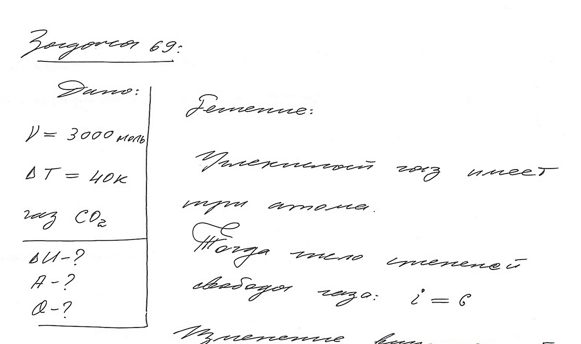 Задача 69:
Дано:
ν = 3000 моль
ΔT = 40К
газ CO₂
ΔU-?
A-?
Q-?
Решение:
Углекислый газ имеет
три атома.
Тогда число степеней
свободы газа: i = 6
Изменение